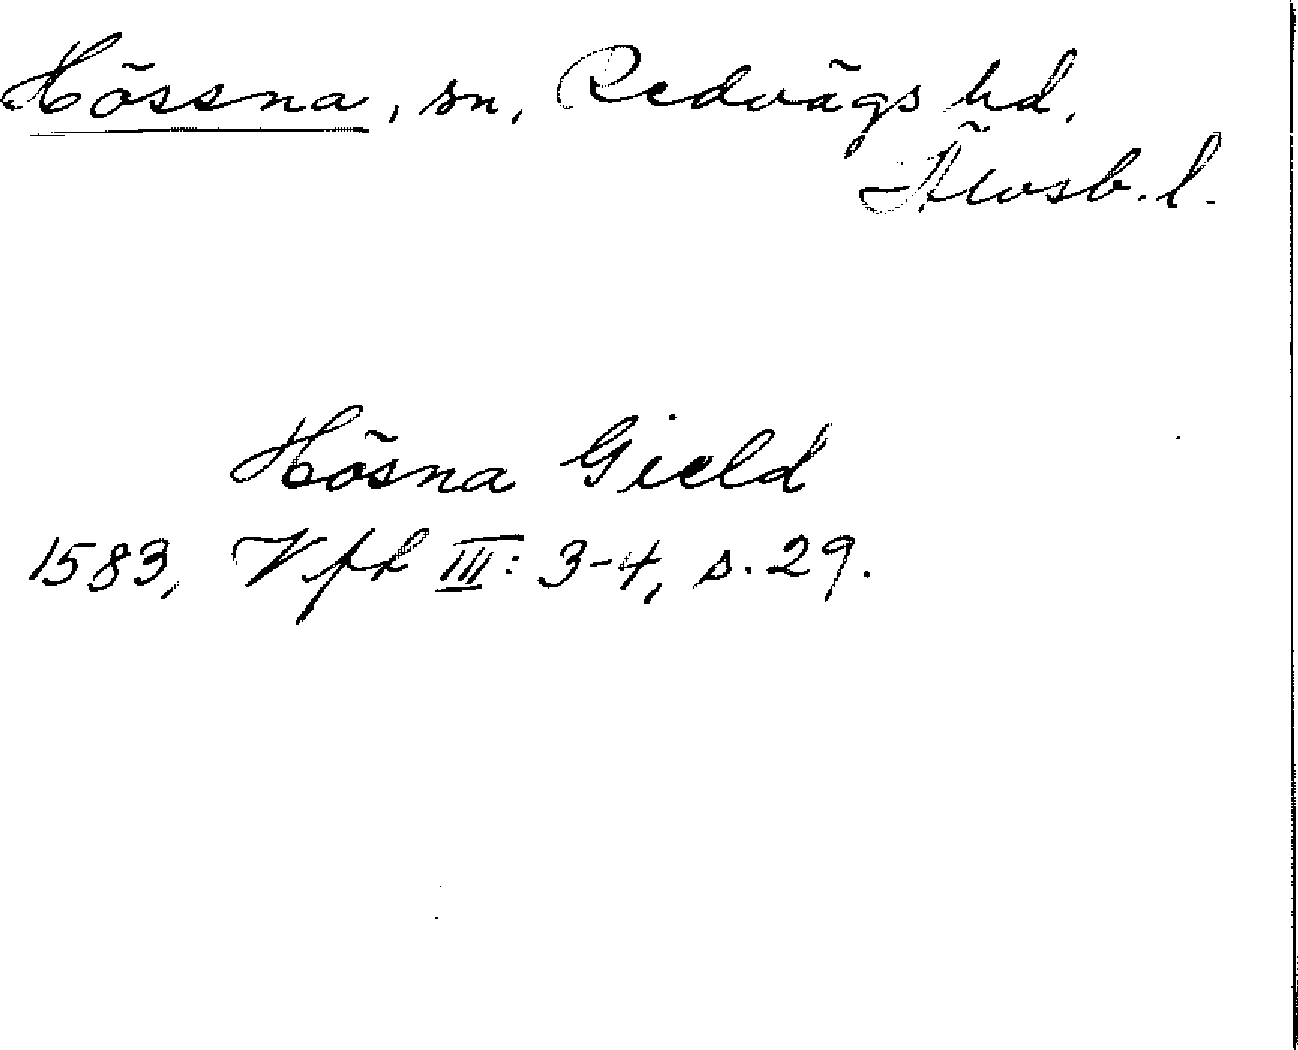 Hössna, sn, Redvägs hd,
Älvsb. l.
Hösna Gield
1583, Vfl III: 3-4, s. 29.